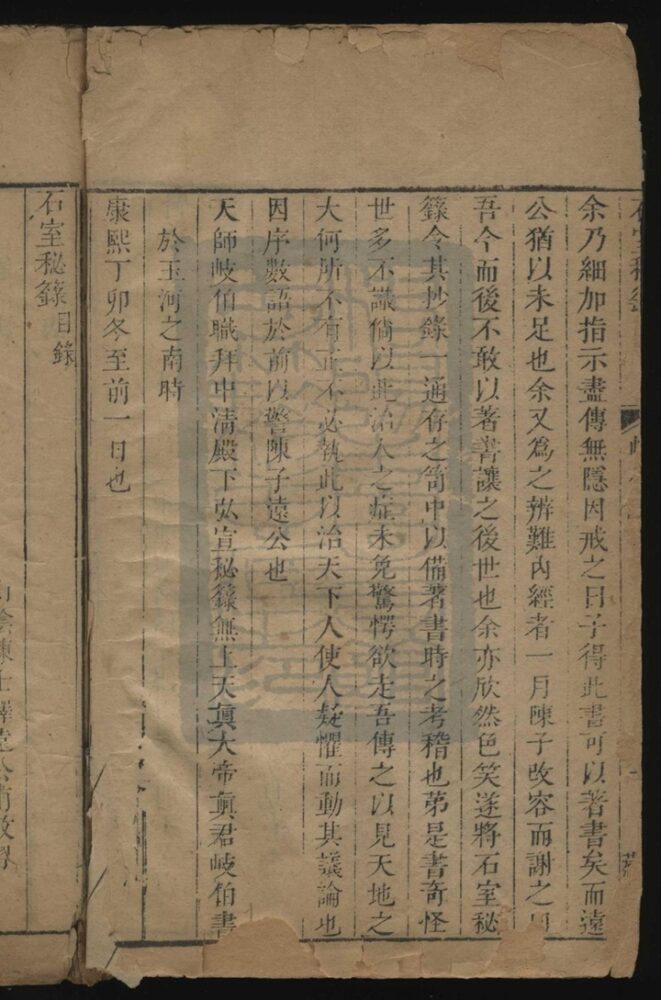 石室秘籙
余乃細加指示盡傳無隱因戒之曰子得此書可以著書矣而遠
公猶以未足也余又爲之辨難內經者一月陳子改容而謝之曰
吾今而後不敢以著書讓之後世也余亦欣然色笑遂將石室秘
籙令其抄錄一通存之笥中以備著書時之考稽也苐是書奇怪
世多不識倘以此治人之症未免驚愕欲走吾傳之以見天地之
大何所不有正不必執此以治天下人使人疑懼而動其議論也
因序數語於前以警陳子遠公也
天師岐伯職拜中清殿下弘宣秘籙無上天眞大帝眞君岐伯書
於玉河之南時
康熙丁卯冬至前一日也
石室秘籙目錄
山陰陳士鐸遠公甫敬習